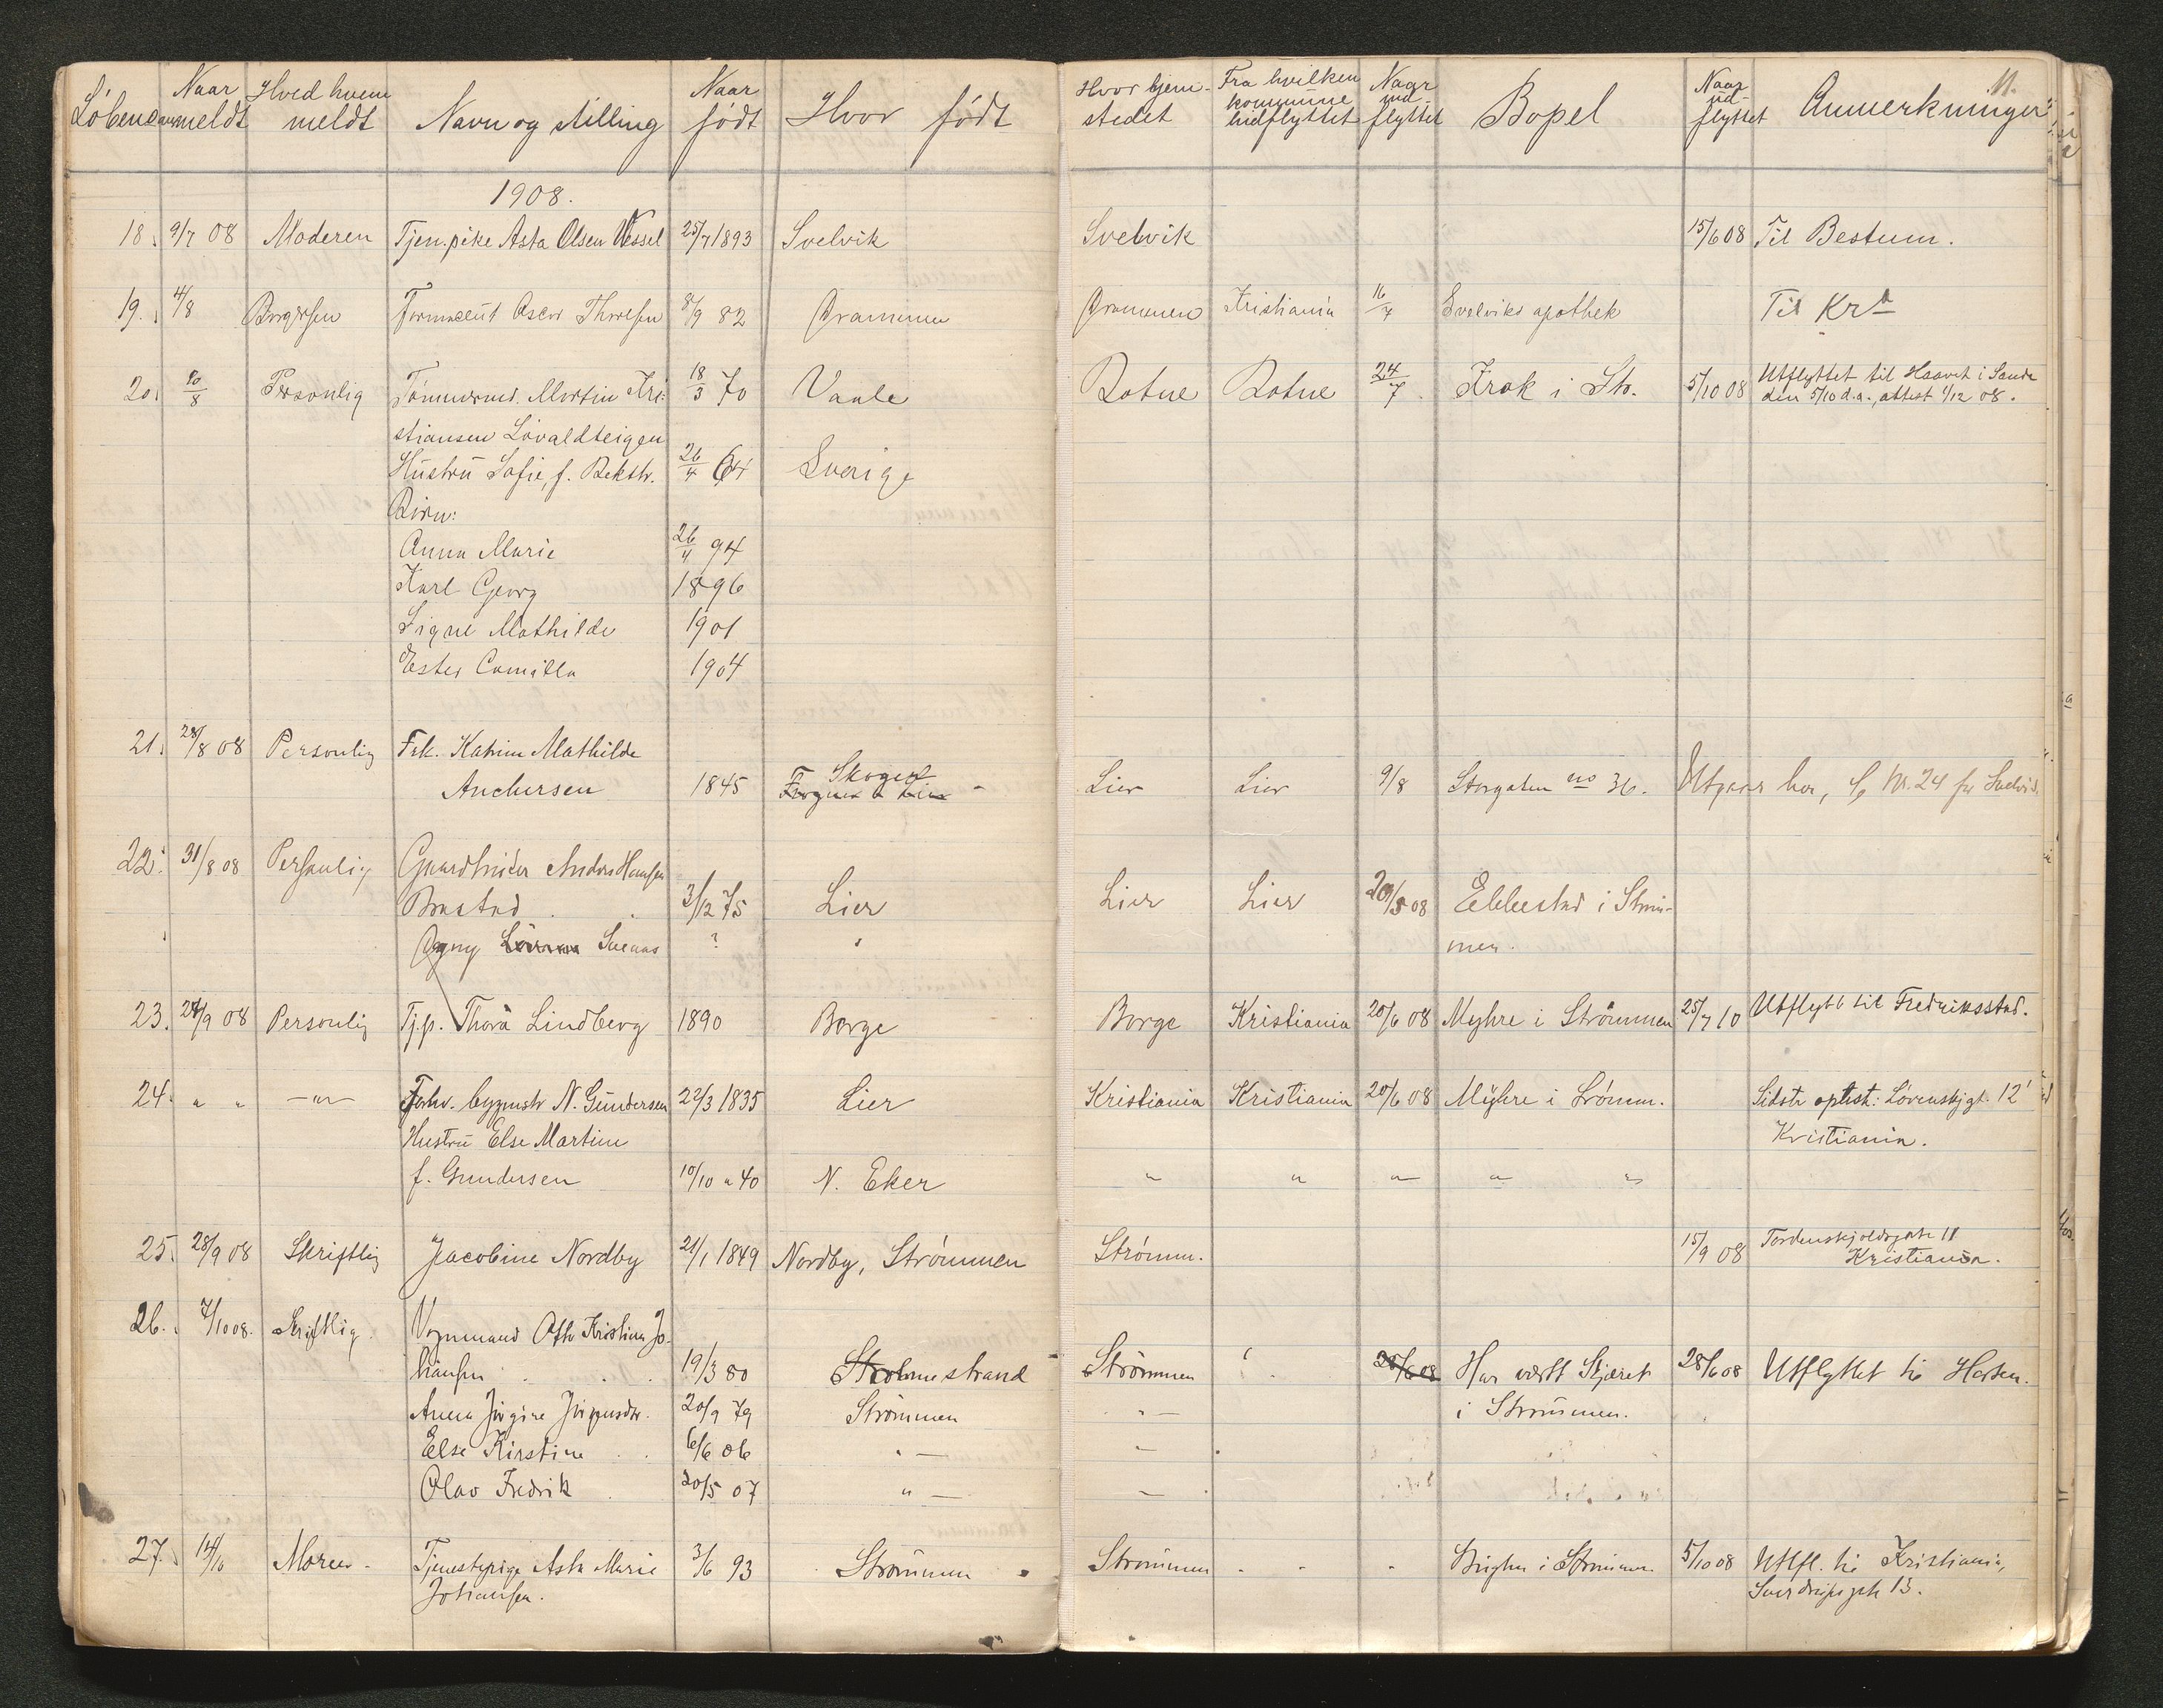 Löbenum Naar meldt Hved hvem meldt Navn og stilling Naar födt Hvor födt Hvor hjemstedet Fra hvilken kommune indflyttet Naar indflyttet Bopel Naar udflyttet Anmerkninger 11.
1908.
18. 9/7 08 Moderen Tjen.pike Asta Olsen Wessel 25/7 1893 Svelvik Svelvik 15/6 08 Til Bestum.
19. 4/8 Borgersen Farmaceut Oscar Thoresen 8/9 82 Drammen Drammen Kristiania 16/7 Svelviks apothek Til Kra
20. 20/8 Personlig Tömmermd. Martin Kri- 18/3 70 Vaale Botne Botne 24/7 Krok i Str. 5/10 08 Utflyttet til Haavet i Sande
den 5/10 d.a., attest 1/12 08.
stiansen Lövaldteigen
Hustru Sofie, f. Bekstr. 26/4 64 Sverige
Börn:
Anna Marie 26/11 94
Karl Georg 1896
Signe Mathilde 1901
Ester Camilla 1904
21. 28/8 08 Personlig Frk. Katrine Mathilde
Andersen 1845 Skoger Lier Lier 9/8 Storgaten no 36. Utgaar her, Nr. 24 for Svelvik.
22. 31/8 08 Personlig Gaardbruker Anders Hansen
Brastad 3/12 75 Lier Lier Lier 20/5 08 Ebbestad i Ström-
men.
Agny Sveaas ? "
23. 24/9 08 Personlig Tj.p. Thora Lindberg 1890 Borge Borge Kristiania 20/6 08 Myhre i Strömmen 25/7 10 Utflytt til Fredriksstad.
24. " " -"- Forhv. bygmstr N. Gundersen 22/3 1835 Lier Kristiania Kristiania 20/6 08 Myhre i Strömm. Sidste oph.st.: Lövenskjgt. 12
Kristiania.
Hustru Else Martine
f. Gundersen 10/10 " 40 N. Eker " " " " "
25. 28/9 08 Skriftlig Jacobine Nordby 21/1 1849 Nordby, Strömmen Strömm. 15/9 08 Tordenskjoldsgate 11
Kristiania.
26. 7/10 08. Skriftlig Vognmand Otto Kristian Jo-
hansen 19/3 80 Holmestrand Strömmen 28/6 08 Har værtt Skjæret 28/6 08 Utflyttet til Horten.
Anna Jörgine Jörgensdtr. 20/9 79 Strömmen " - i Strömmen.
Else Kirstine 6/6 06 " - " -
Olav Fredrik 20/5 07 " - -
27. 14/10 Moren Tjenestepige Asta Marie 3/6 93 Strömmen Strömmen - - - i Strömmen 5/10 08 Utfl. til Kristiania,
Johansen. Sverdrupsgate 13.